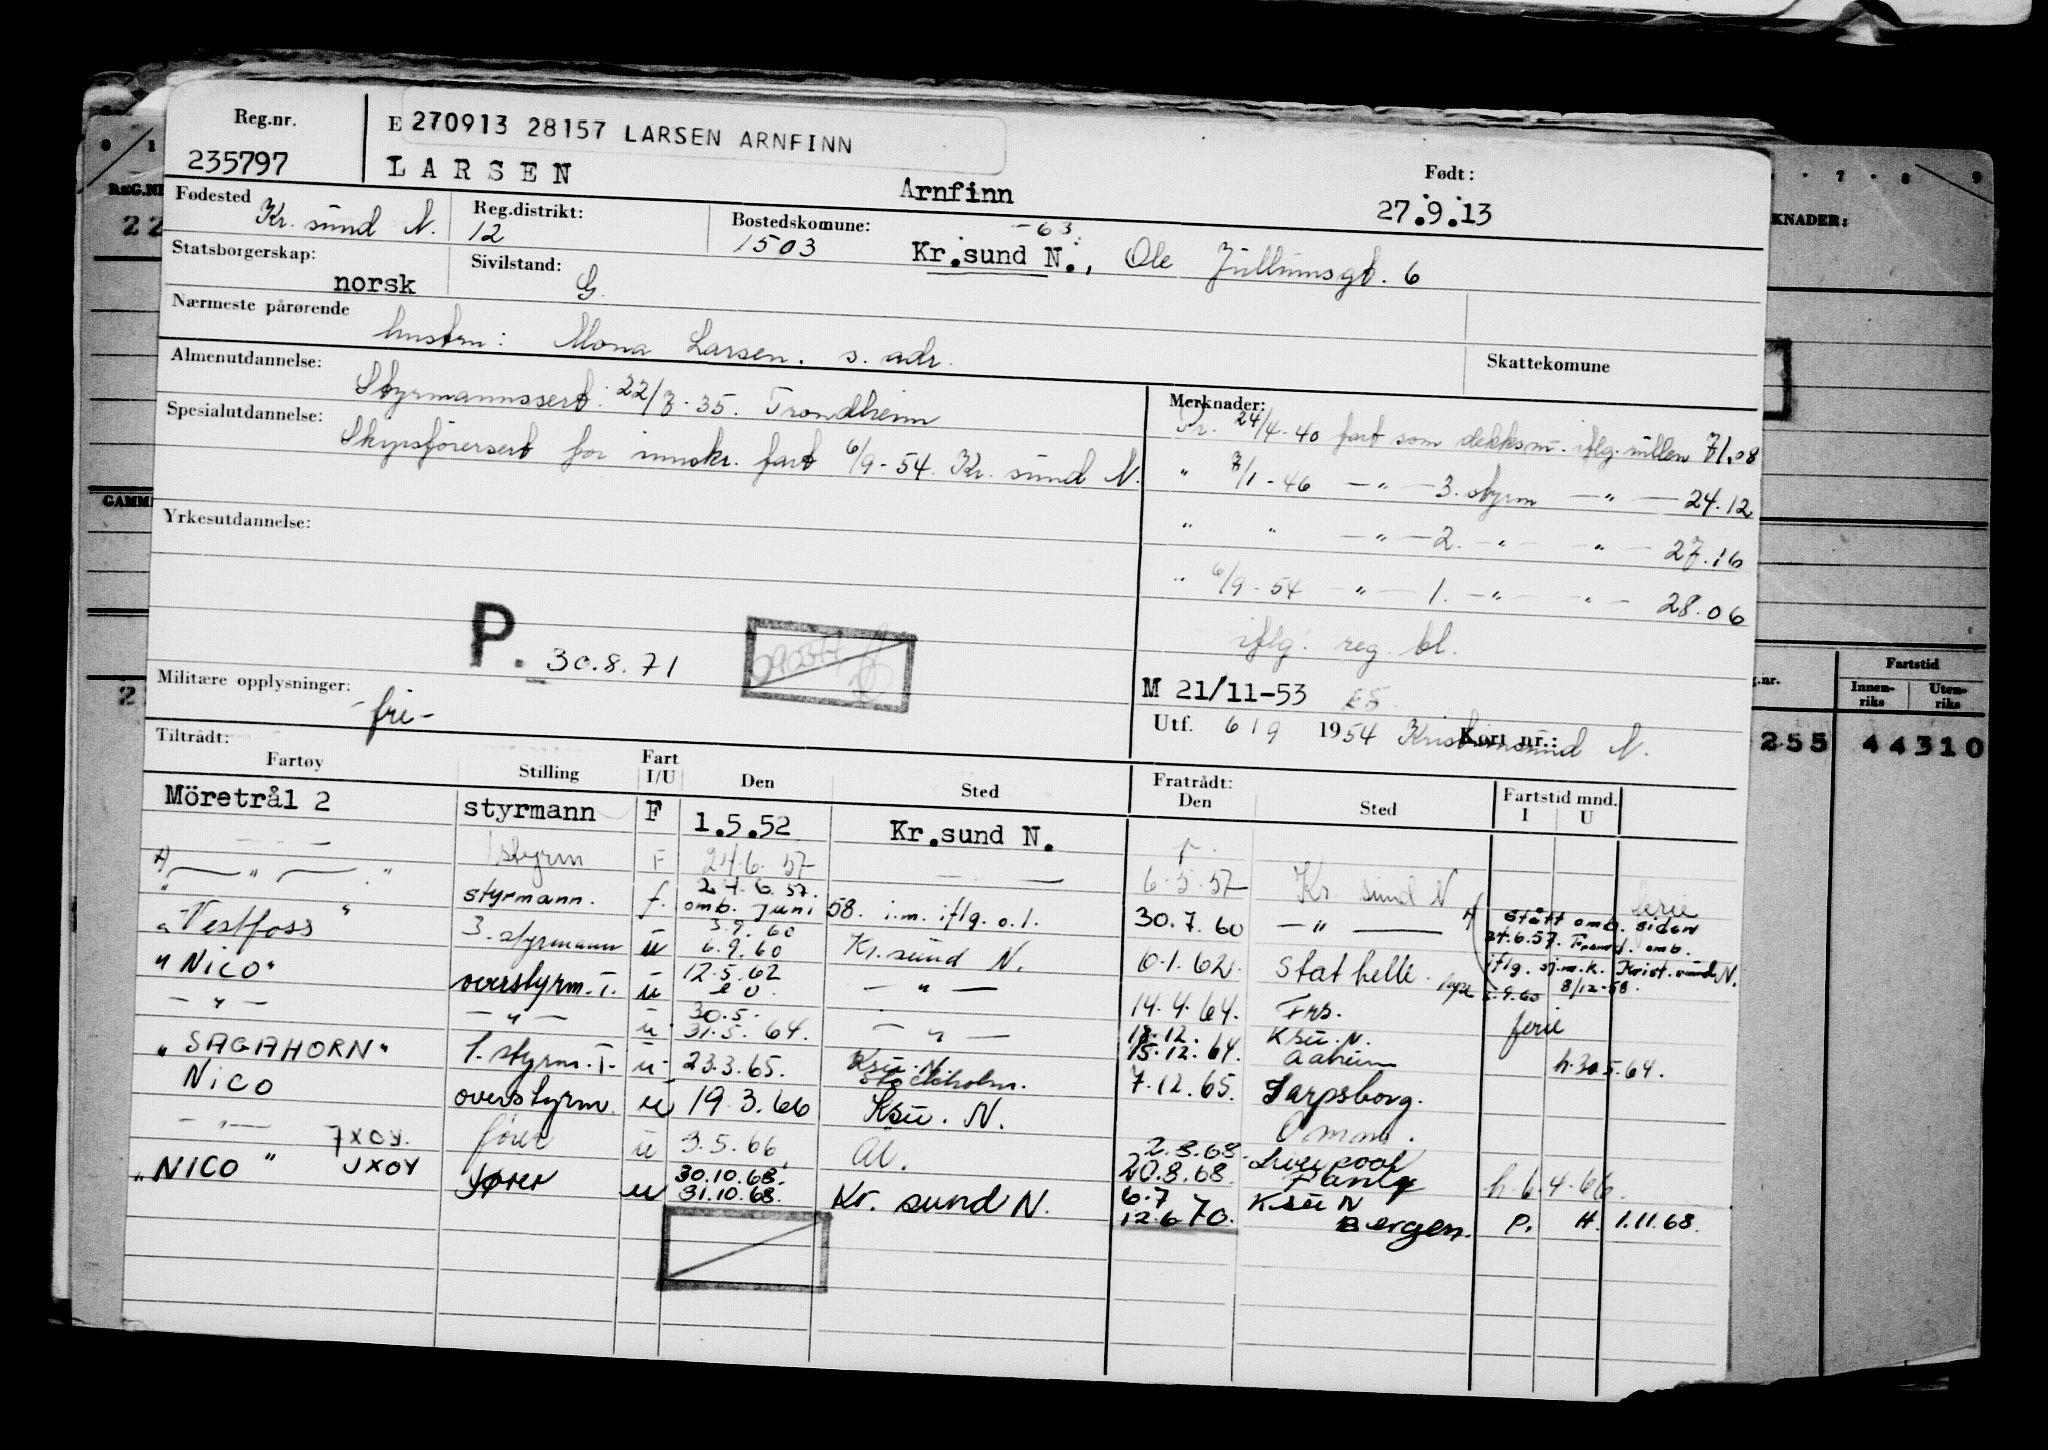 Reg.nr.
235797
E 270913 28157 LARSEN ARNFINN
LARSEN Arnfinn
Født:
27.9.13
Fødested
Kr. sund N.
Reg.distrikt:
12
Bostedskomune:
1503
-63
Kr.sund N., Ole 6
Statsborgerskap:
norsk
Sivilstand:
G.
Nærmeste pårørende
hustru: Mona Larsen. s. adr.
Skattekomune
Almenutdannelse:
Styrmannssert. 22/3-35. Trondheim
Spesialutdannelse:
Skipsførersert for innskr. fart 6/9-54. Kr. sund N.
Yrkesutdannelse:
Merknader:
Pr. 24/4-40 fart som dekksm. iflg. rullen 71.08
" 7/1-46 — " — 3. styrm — " — 24.12
" " — " — 2. — " — — " — 27.16
" 6/9-54 — " — 1. — " — — " — 28.06
iflg. reg. bl.
P. 30.8.71
M 21/11-53
Militære opplysninger:
-fri-
Utf. 6/9 1954 Kristiansund N.
Kort nr.:
Tiltrådt:
Fartøy Stilling Fart I/U Den Sted
Fratrådt:
Den Sted
Fartstid mnd.
I U
Möretrål 2 styrmann F 1.5.52 Kr.sund N.
— " — styrm F 24.6.57 — 6.5.57 Kr. sund N ferie
" styrmann. f. 24.6.57. omb. juni 58. i.m. iflg. o.l. 30.7.60 — " —
Stått omb. siden 24.6.57. omb. iflg. sj.m.k. Krist.sund N. 8/12-58.
"Vestfoss" 3. styrmann u 3.9.60 6.9.60 Kr.sund N. 6.1.62. Stathelle. 5.9.60
"NICO" overstyrm. T. u 12.5.62 — " — 14.4.64. Frs. ferie
— " — — " — u 30.5. 31.5.64. — " — 18.12. 15.12.64. Ksu. N. h.30.5.64.
"SAGAHORN" 1. styrm. T. u 23.3.65. Stockholm. 7.12.65. Sarpsborg.
NICO overstyrm. u 19.3.66 Ksu. N. Omm.
— " — JXOY. fører u 3.5.66 Al. 2.8.68. 20.8.68. Liverpool h.6.4.66.
"NICO" JXOY fører u 30.10.68. 31.10.68. Kr. sund N. 6.7 12.6 70. Ksu N Bergen. P. H. 1.11.68.
REG.NR
KNADER:
7 8 9
Fartstid
Innen-riks Uten-riks
255 44310